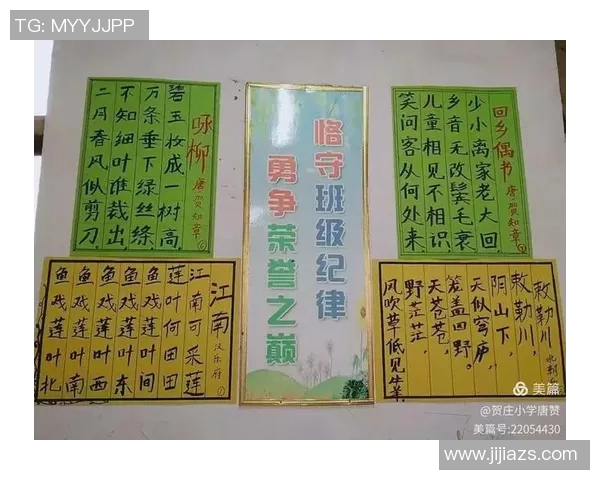 TG: MYYJJPP
咏柳 唐·贺知章 ⑥
碧玉妆成一树高,
万条垂下绿丝绦
不知细叶谁裁出,
二月春风似剪刀
恪守班级纪律
勇争荣誉之巅
回乡偶书 唐·贺知章 ⑦
少小离家老大回,
乡音无改鬓毛衰
儿童相见不相识
笑问客从何处来.
江南 汉乐府 ①
江南可采莲
莲叶何田田
鱼戏莲叶间
鱼戏莲叶东
鱼戏莲叶西
鱼戏莲叶南
鱼戏莲叶北
敕勒川 北朝
敕勒川，
阴山下，
天似穹庐，
笼盖四野。
天苍苍，
野茫茫，
风吹草低见牛羊
美篇
@贺庄小学唐赞
美篇号:22054430
www.jijiazs.com